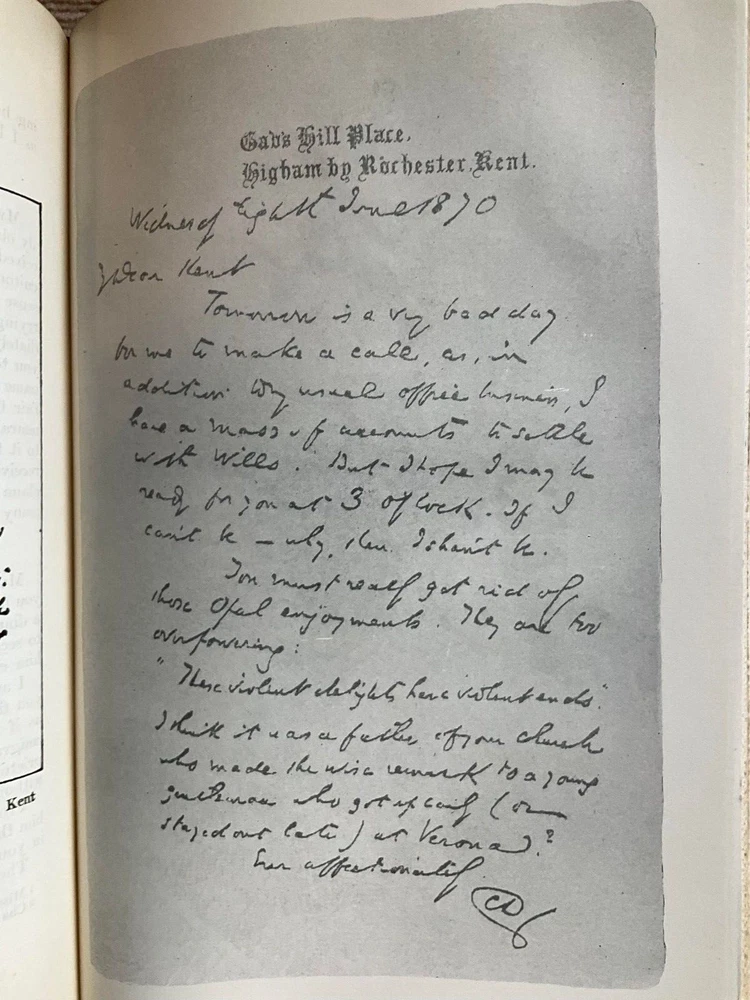 Gad's Hill Place,
Higham by Rochester, Kent.
Wednesday Eighth June 1870
Dear Kent
Tomorrow is a very bad day
for me to make a call, as, in
addition to my usual office business, I
have a mass of accounts to settle
with Wills. But I hope I may be
ready for you at 3 o'Clock. If I
can't be — why, then I shan't be.
You must really get rid of
those Opal enjoyments. They are too
overpowering:
"These violent delights have violent ends".
I think it was a father of your church
who made the wise remark to a young
gentleman who got up early (or
stayed out late) at Verona?
Ever affectionately
CD
Kent